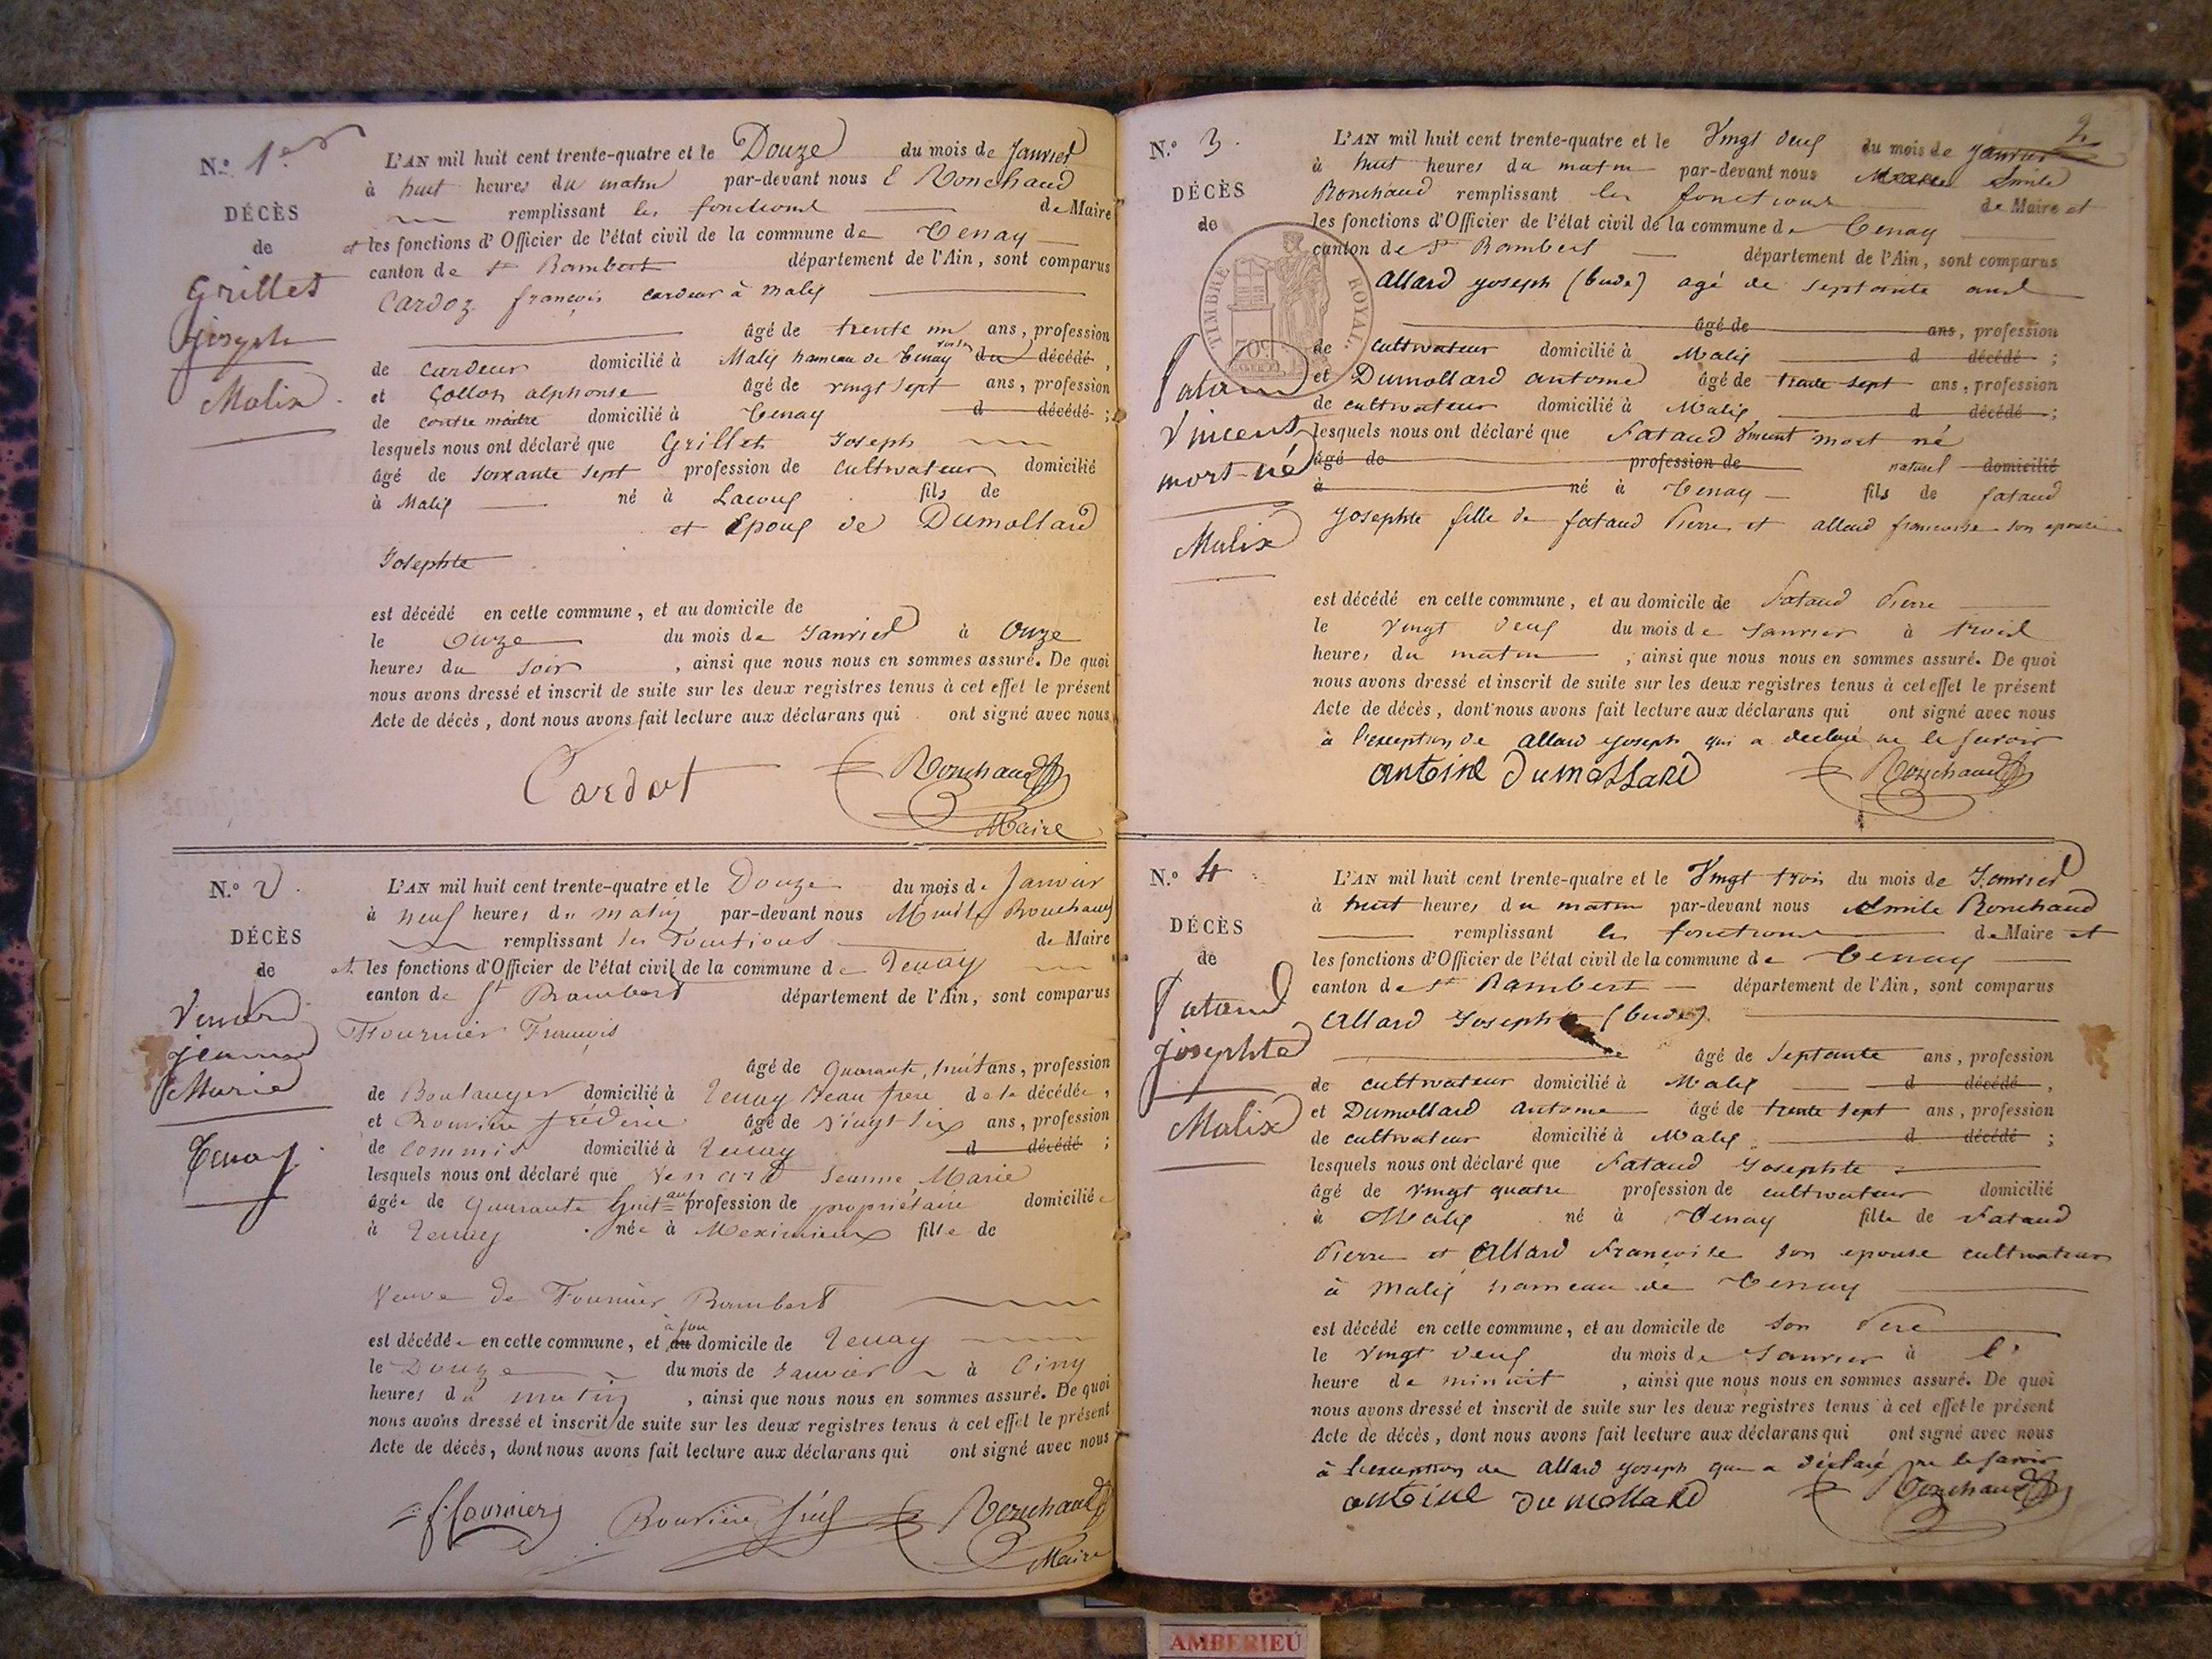 N.º 1er
DÉCÈS
de
Grillet
joseph
Malix
L'AN mil huit cent trente-quatre et le Douze du mois de Janvier
à huit heures du matin par-devant nous E Ronchaud
remplissant les fonctions de Maire
et les fonctions d'Officier de l'état civil de la commune de Tenay
canton de St Rambert département de l'Ain, sont comparus
Cardoz françois cardeur à Malix
âgé de trente un ans, profession
de cardeur domicilié à Malix hameau de Tenay du décédé,
et Collon alphonse âgé de vingt sept ans, profession
de contre maitre domicilié à Tenay d décédé ;
lesquels nous ont déclaré que Grillet Joseph
âgé de soixante sept profession de cultivateur domicilié
à Malix né à Lacoux fils de
et Epoux de Dumollard
Josephte
est décédé en cette commune, et au domicile de
le Onze du mois de Janvier à Onze
heures du soir, ainsi que nous nous en sommes assuré. De quoi
nous avons dressé et inscrit de suite sur les deux registres tenus à cet effet le présent
Acte de décès, dont nous avons fait lecture aux déclarans qui ont signé avec nous
Cardot Ronchaud
Maire
N.º 2
DÉCÈS
de
Venard
jeanne
Marie
Tenay
L'AN mil huit cent trente-quatre et le Douze du mois de Janvier
à neuf heures du matin par-devant nous Emile Ronchaud
remplissant les fonctions de Maire
et les fonctions d'Officier de l'état civil de la commune de Tenay
canton de St Rambert département de l'Ain, sont comparus
Fournier François
âgé de quarante huit ans, profession
de Boulanger domicilié à Tenay beau frere de la décédée,
et Rouvière fréderic âgé de vingt six ans, profession
de commis domicilié à Tenay d décédé ;
lesquels nous ont déclaré que Venard Jeanne Marie
âgée de Quarante huit ans profession de propriétaire domiciliée
à Tenay née à Meximieux fille de
Veuve de Fournier Rambert
est décédée en cette commune, et au à son domicile de Tenay
le Douze du mois de Janvier à Cinq
heures du matin, ainsi que nous nous en sommes assuré. De quoi
nous avons dressé et inscrit de suite sur les deux registres tenus à cet effet le présent
Acte de décès, dont nous avons fait lecture aux déclarans qui ont signé avec nous
f. fournier Rouvière Ronchaud
Maire
2
N.º 3
DÉCÈS
de
fataud
Vincent
mort-né
Malix
TIMBRE ROYAL
L'AN mil huit cent trente-quatre et le Vingt deux du mois de Janvier
à huit heures du matin par-devant nous Emile
Ronchaud remplissant les fonctions de Maire et
les fonctions d'Officier de l'état civil de la commune de Tenay
canton de St Rambert département de l'Ain, sont comparus
Allard joseph (bude) agé de septante ans
âgé de ans, profession
de cultivateur domicilié à Malix d décédé ;
et Dumollard antoine âgé de trente sept ans, profession
de cultivateur domicilié à Malix d décédé ;
lesquels nous ont déclaré que fataud Vincent mort né
âgé de profession de naturel domicilié
à né à Tenay fils de fataud
Josephte fille de fataud Pierre et allard francoise son epouse
est décédé en cette commune, et au domicile de fataud Pierre
le vingt deux du mois de Janvier à trois
heures du matin, ainsi que nous nous en sommes assuré. De quoi
nous avons dressé et inscrit de suite sur les deux registres tenus à cet effet le présent
Acte de décès, dont nous avons fait lecture aux déclarans qui ont signé avec nous
à l'exception de allard joseph qui a declaré ne le savoir
antoine dumollard Ronchaud
N.º 4
DÉCÈS
de
fataud
josephte
Malix
L'AN mil huit cent trente-quatre et le Vingt trois du mois de Janvier
à huit heures du matin par-devant nous Emile Ronchaud
remplissant les fonctions de Maire et
les fonctions d'Officier de l'état civil de la commune de Tenay
canton de St Rambert département de l'Ain, sont comparus
Allard Joseph (bude)
âgé de septante ans, profession
de cultivateur domicilié à Malix d décédé,
et Dumollard antoine âgé de trente sept ans, profession
de cultivateur domicilié à Malix d décédé ;
lesquels nous ont déclaré que fataud Josephte
âgé de vingt quatre profession de cultivateur domicilié
à Malix né à Tenay fille de fataud
Pierre et Allard Françoise son epouse cultivateurs
à Malix hameau de Tenay
est décédé en cette commune, et au domicile de son Pere
le vingt deux du mois de Janvier à l'
heure de minuit, ainsi que nous nous en sommes assuré. De quoi
nous avons dressé et inscrit de suite sur les deux registres tenus à cet effet le présent
Acte de décès, dont nous avons fait lecture aux déclarans qui ont signé avec nous
à l'exception de Allard joseph qui a déclaré ne le savoir
antoine dumollard Ronchaud
AMBERIEU